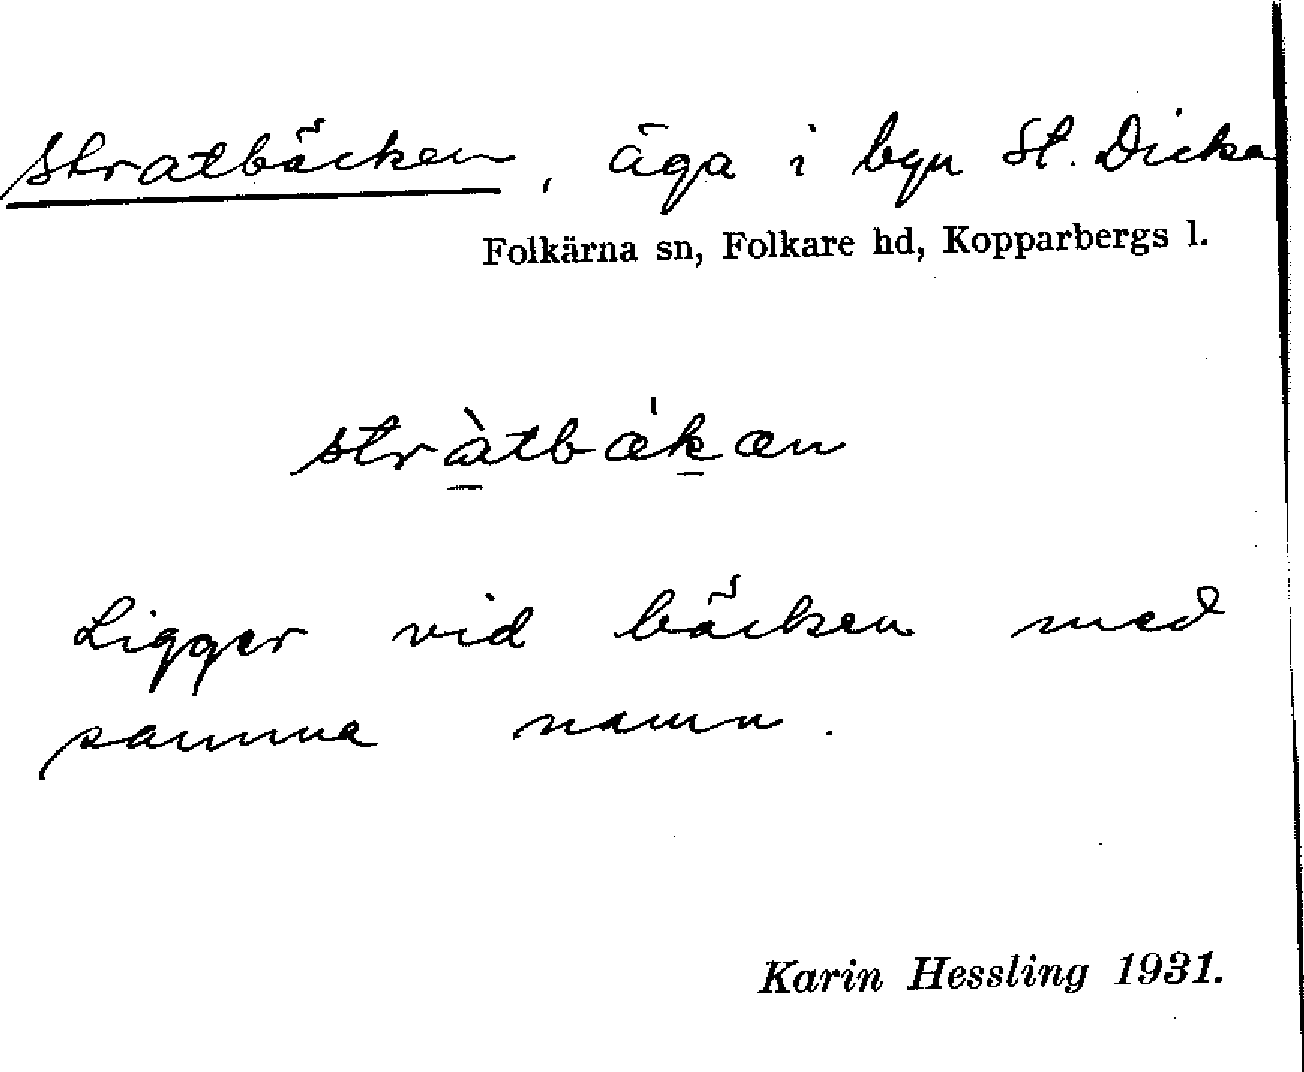 Stratbäcken, äga i byn St. Dicka
Folkärna sn, Folkare hd, Kopparbergs l.
stràtbækæn
Ligger vid bäcken med
samma namn.
Karin Hessling 1931.